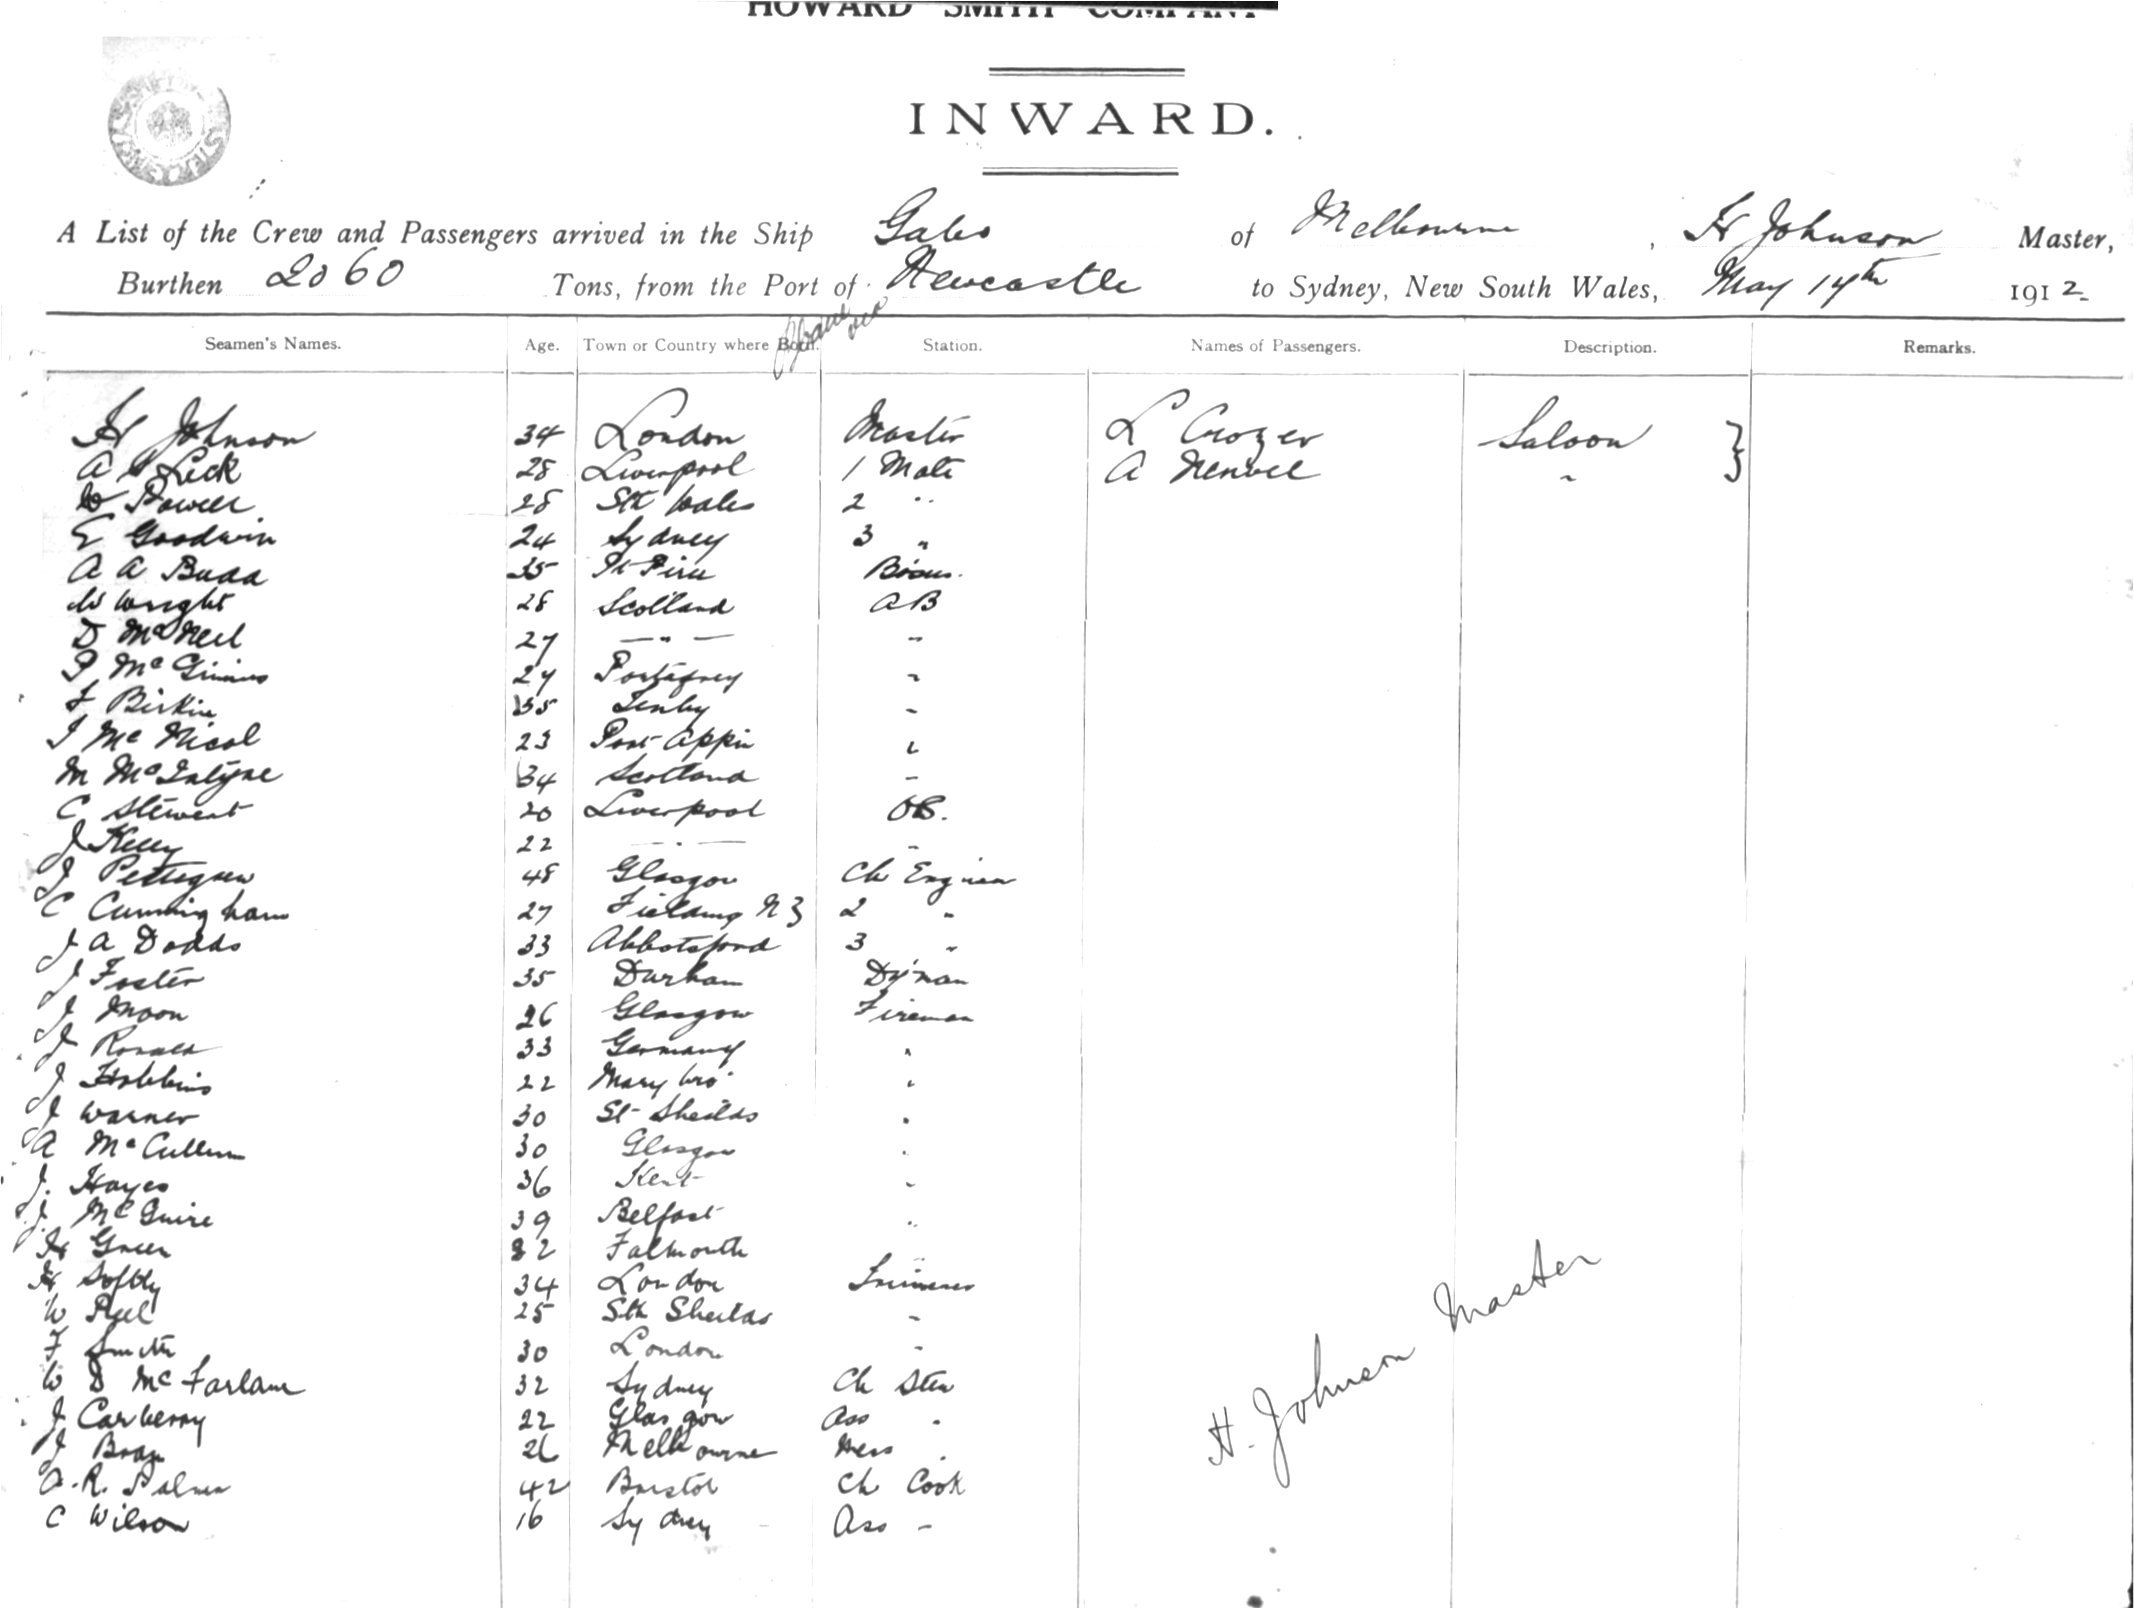 HOWARD SMITH COMPANY
INWARD.
A List of the Crew and Passengers arrived in the Ship Gabo of Melbourne, H Johnson Master,
Burthen 2060 Tons, from the Port of Newcastle to Sydney, New South Wales, May 14th 1912
Seamen's Names. Age. Town or Country where Born. Station. Names of Passengers. Description. Remarks.
H Johnson 34 London Master L Crozer Saloon
A Leck 28 Liverpool 1 Mate A "
W Powell 28 Sth Wales 2 "
E Goodwin 24 Sydney 3 "
A A Budd 35 Pt Pirie Bosun.
W Wright 28 Scotland AB
D McNeil 27 — " — "
P McGinnis 27 "
F Birkin 35 Tenby "
J McNicol 23 Port Appin "
M McIntyre 34 Scotland "
C Stewart 20 Liverpool OS.
J Kelly 22 — " — "
J Pettigrew 48 Glasgow Ch Engineer
C Cunningham 27 Fielding NZ 2 "
J A Dodds 33 Abbotsford 3 "
J Foster 35 Durham Dy'man
J Moon 26 Glasgow Fireman
J Ronald 33 Germany "
J Hobbins 22 Mary bro' "
J Warner 30 St Sheilds "
A McCullum 30 Glasgow "
J. Hayes 36 Kent "
J. McGuire 39 Belfast "
H Green 32 Falmouth "
H Softly 34 London Trimmer
W Peel 25 Sth Sheilds "
F Smith 30 London "
W D McFarlane 32 Sydney Ch Stew
J Carberry 22 Glasgow Ass "
J 26 Melbourne Mess "
A. R. Palmer 42 Bristol Ch Cook
C Wilson 16 Sydney Ass "
H. Johnson Master